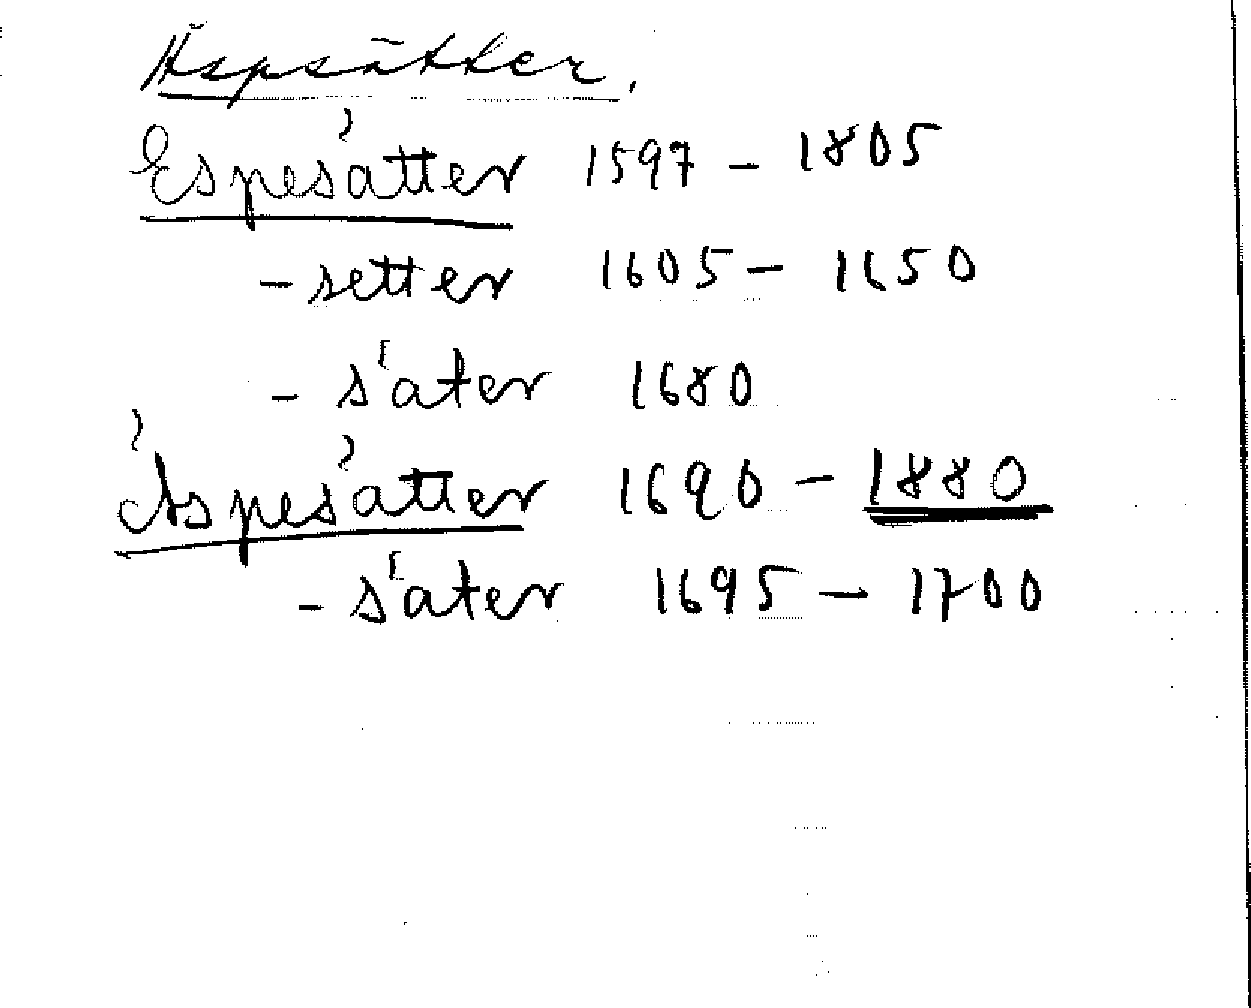 Äspsätter.
Espesätter 1597 – 1805
– setter 1605 – 1650
– säter 1680
Äspesätter 1690 – 1880
– säter 1695 – 1700